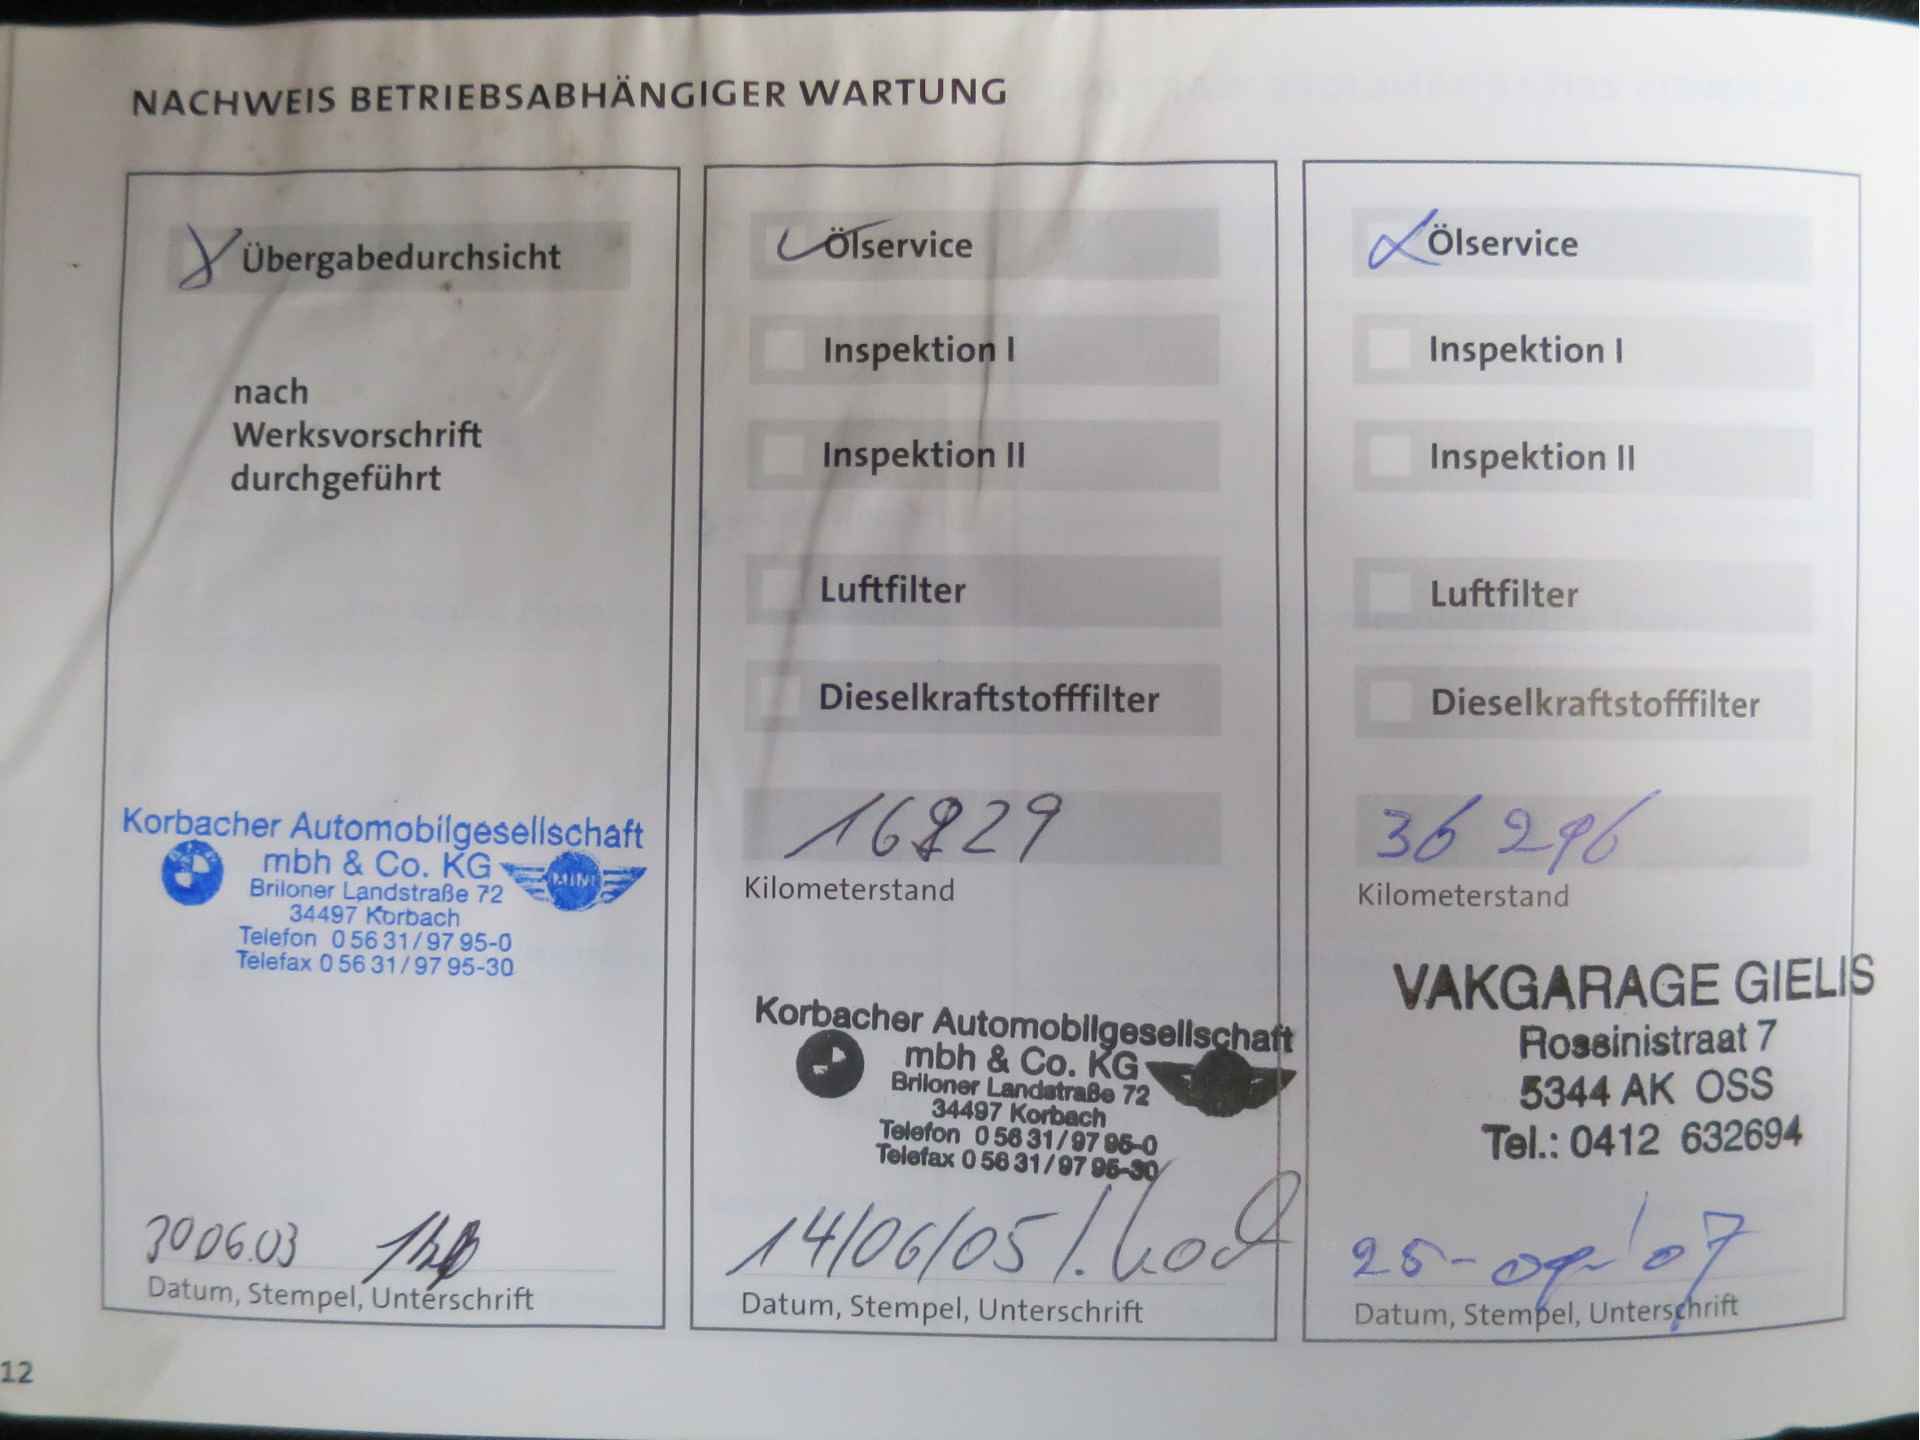 NACHWEIS BETRIEBSABHÄNGIGER WARTUNG
Übergabedurchsicht
nach
Werksvorschrift
durchgeführt
Korbacher Automobilgesellschaft
mbh & Co. KG
MINI
Briloner Landstraße 72
34497 Korbach
Telefon 0 56 31/97 95-0
Telefax 0 56 31/97 95-30
30 06.03
Datum, Stempel, Unterschrift
Ölservice
Inspektion I
Inspektion II
Luftfilter
Dieselkraftstofffilter
Kilometerstand
Korbacher Automobilgesellschaft
mbh & Co. KG
Briloner Landstraße 72
34497 Korbach
Telefon 0 56 31/97 95-0
Telefax 0 56 31/97 95-30
14/06/05
Datum, Stempel, Unterschrift
Ölservice
Inspektion I
Inspektion II
Luftfilter
Dieselkraftstofffilter
36 296
Kilometerstand
VAKGARAGE GIELIS
Rossinistraat 7
5344 AK OSS
Tel.: 0412 632694
25-04-'07
Datum, Stempel, Unterschrift
12